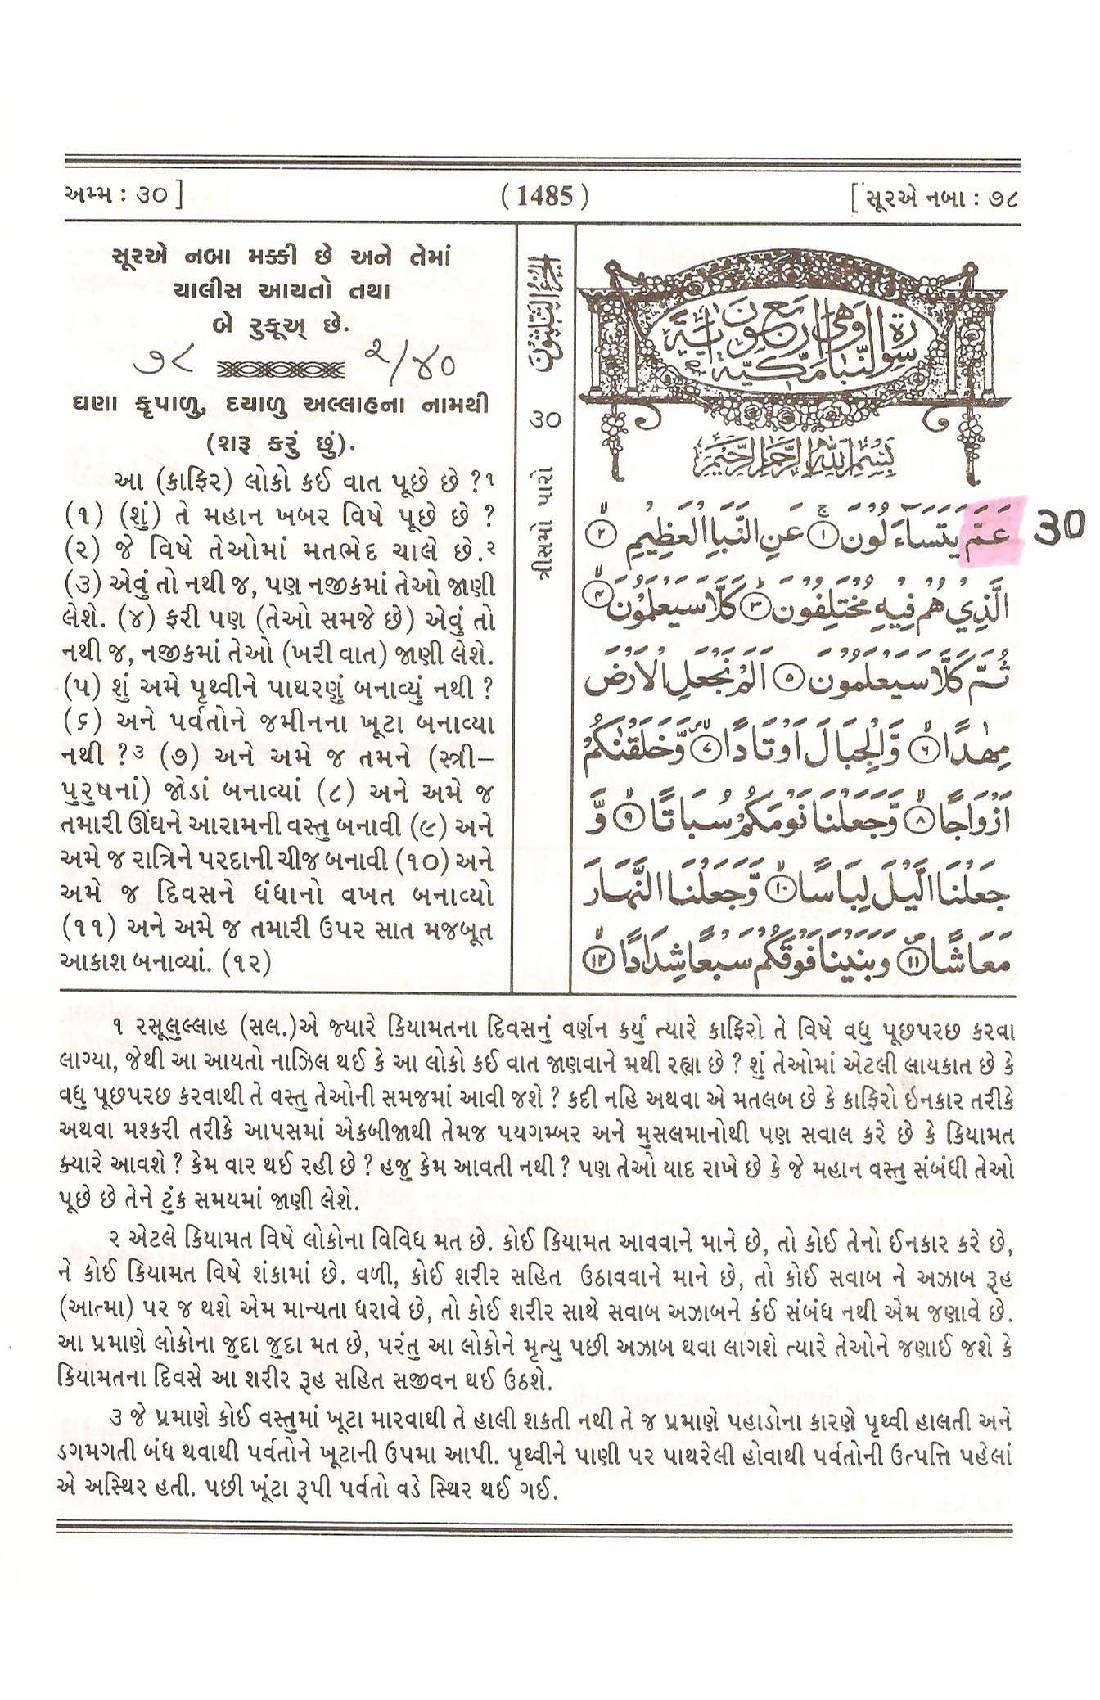 અમ્મ : ૩૦ ]
( 1485 )
[ સૂરએ નબા : ૭૮
સૂરએ નબા મક્કી છે અને તેમાં
ચાલીસ આયતો તથા
બે રુકૂઅ્ છે.
૭૮ ૨/૪૦
ઘણા કૃપાળુ, દયાળુ અલ્લાહના નામથી
(શરૂ કરું છું).
આ (કાફિર) લોકો કઈ વાત પૂછે છે ?૧
(૧) (શું) તે મહાન ખબર વિષે પૂછે છે ?
(૨) જે વિષે તેઓમાં મતભેદ ચાલે છે.૨
(૩) એવું તો નથી જ, પણ નજીકમાં તેઓ જાણી
લેશે. (૪) ફરી પણ (તેઓ સમજે છે) એવું તો
નથી જ, નજીકમાં તેઓ (ખરી વાત) જાણી લેશે.
(૫) શું અમે પૃથ્વીને પાથરણું બનાવ્યું નથી ?
(૬) અને પર્વતોને જમીનના ખૂટા બનાવ્યા
નથી ?૩ (૭) અને અમે જ તમને (સ્ત્રી–
પુરુષનાં) જોડાં બનાવ્યાં (૮) અને અમે જ
તમારી ઊંઘને આરામની વસ્તુ બનાવી (૯) અને
અમે જ રાત્રિને પરદાની ચીજ બનાવી (૧૦) અને
અમે જ દિવસને ધંધાનો વખત બનાવ્યો
(૧૧) અને અમે જ તમારી ઉપર સાત મજબૂત
આકાશ બનાવ્યાં. (૧૨)
૩૦
ત્રીસમો પારો
بِسْمِ اللهِ الرَّحْمٰنِ الرَّحِيْمِ
عَمَّ يَتَسَآءَلُوْنَ ۝۱ عَنِ النَّبَاِ الْعَظِيْمِ ۝۲
30
الَّذِيْ هُمْ فِيْهِ مُخْتَلِفُوْنَ ۝۳ كَلَّا سَيَعْلَمُوْنَ ۝۴
ثُمَّ كَلَّا سَيَعْلَمُوْنَ ۝۵ اَلَمْ نَجْعَلِ الْاَرْضَ
مِهٰدًا ۝۶ وَّالْجِبَالَ اَوْتَادًا ۝۷ وَّخَلَقْنٰكُمْ
اَزْوَاجًا ۝۸ وَّجَعَلْنَا نَوْمَكُمْ سُبَاتًا ۝۹ وَّ
جَعَلْنَا الَّيْلَ لِبَاسًا ۝۱۰ وَّجَعَلْنَا النَّهَارَ
مَعَاشًا ۝۱۱ وَبَنَيْنَا فَوْقَكُمْ سَبْعًا شِدَادًا ۝۱۲
૧ રસૂલુલ્લાહ (સલ.)એ જ્યારે કિયામતના દિવસનું વર્ણન કર્યું ત્યારે કાફિરો તે વિષે વધુ પૂછપરછ કરવા
લાગ્યા, જેથી આ આયતો નાઝિલ થઈ કે આ લોકો કઈ વાત જાણવાને મથી રહ્યા છે ? શું તેઓમાં એટલી લાયકાત છે કે
વધુ પૂછપરછ કરવાથી તે વસ્તુ તેઓની સમજમાં આવી જશે ? કદી નહિ અથવા એ મતલબ છે કે કાફિરો ઇનકાર તરીકે
અથવા મશ્કરી તરીકે આપસમાં એકબીજાથી તેમજ પયગમ્બર અને મુસલમાનોથી પણ સવાલ કરે છે કે કિયામત
ક્યારે આવશે ? કેમ વાર થઈ રહી છે ? હજુ કેમ આવતી નથી ? પણ તેઓ યાદ રાખે છે કે જે મહાન વસ્તુ સંબંધી તેઓ
પૂછે છે તેને ટુંક સમયમાં જાણી લેશે.
૨ એટલે કિયામત વિષે લોકોના વિવિધ મત છે. કોઈ કિયામત આવવાને માને છે, તો કોઈ તેનો ઈનકાર કરે છે,
ને કોઈ કિયામત વિષે શંકામાં છે. વળી, કોઈ શરીર સહિત ઉઠાવવાને માને છે, તો કોઈ સવાબ ને અઝાબ રૂહ
(આત્મા) પર જ થશે એમ માન્યતા ધરાવે છે, તો કોઈ શરીર સાથે સવાબ અઝાબને કંઈ સંબંધ નથી એમ જણાવે છે.
આ પ્રમાણે લોકોના જુદા જુદા મત છે, પરંતુ આ લોકોને મૃત્યુ પછી અઝાબ થવા લાગશે ત્યારે તેઓને જણાઈ જશે કે
કિયામતના દિવસે આ શરીર રૂહ સહિત સજીવન થઈ ઉઠશે.
૩ જે પ્રમાણે કોઈ વસ્તુમાં ખૂટા મારવાથી તે હાલી શકતી નથી તે જ પ્રમાણે પહાડોના કારણે પૃથ્વી હાલતી અને
ડગમગતી બંધ થવાથી પર્વતોને ખૂટાની ઉપમા આપી. પૃથ્વીને પાણી પર પાથરેલી હોવાથી પર્વતોની ઉત્પત્તિ પહેલાં
એ અસ્થિર હતી. પછી ખૂંટા રૂપી પર્વતો વડે સ્થિર થઈ ગઈ.